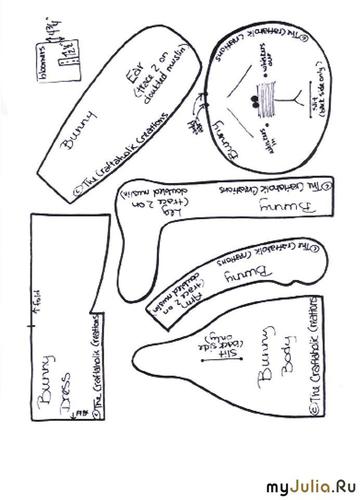 bloomers
Bunny
Ear
(trace 2 on
doubled muslin)
© The Craftaholic Creations
© The Craftaholic Creations
Bunny
whiskers
out
whiskers
in
Slit
(back side only)
© The Craftaholic Creations
Bunny
Leg
(trace 2 on
doubled muslin)
© The Craftaholic Creations
Bunny
Arm
(trace 2 on
doubled muslin)
fold
Bunny
Dress
© The Craftaholic Creations
Slit
(back side
only)
Bunny
Body
© The Craftaholic Creations
myJulia.Ru